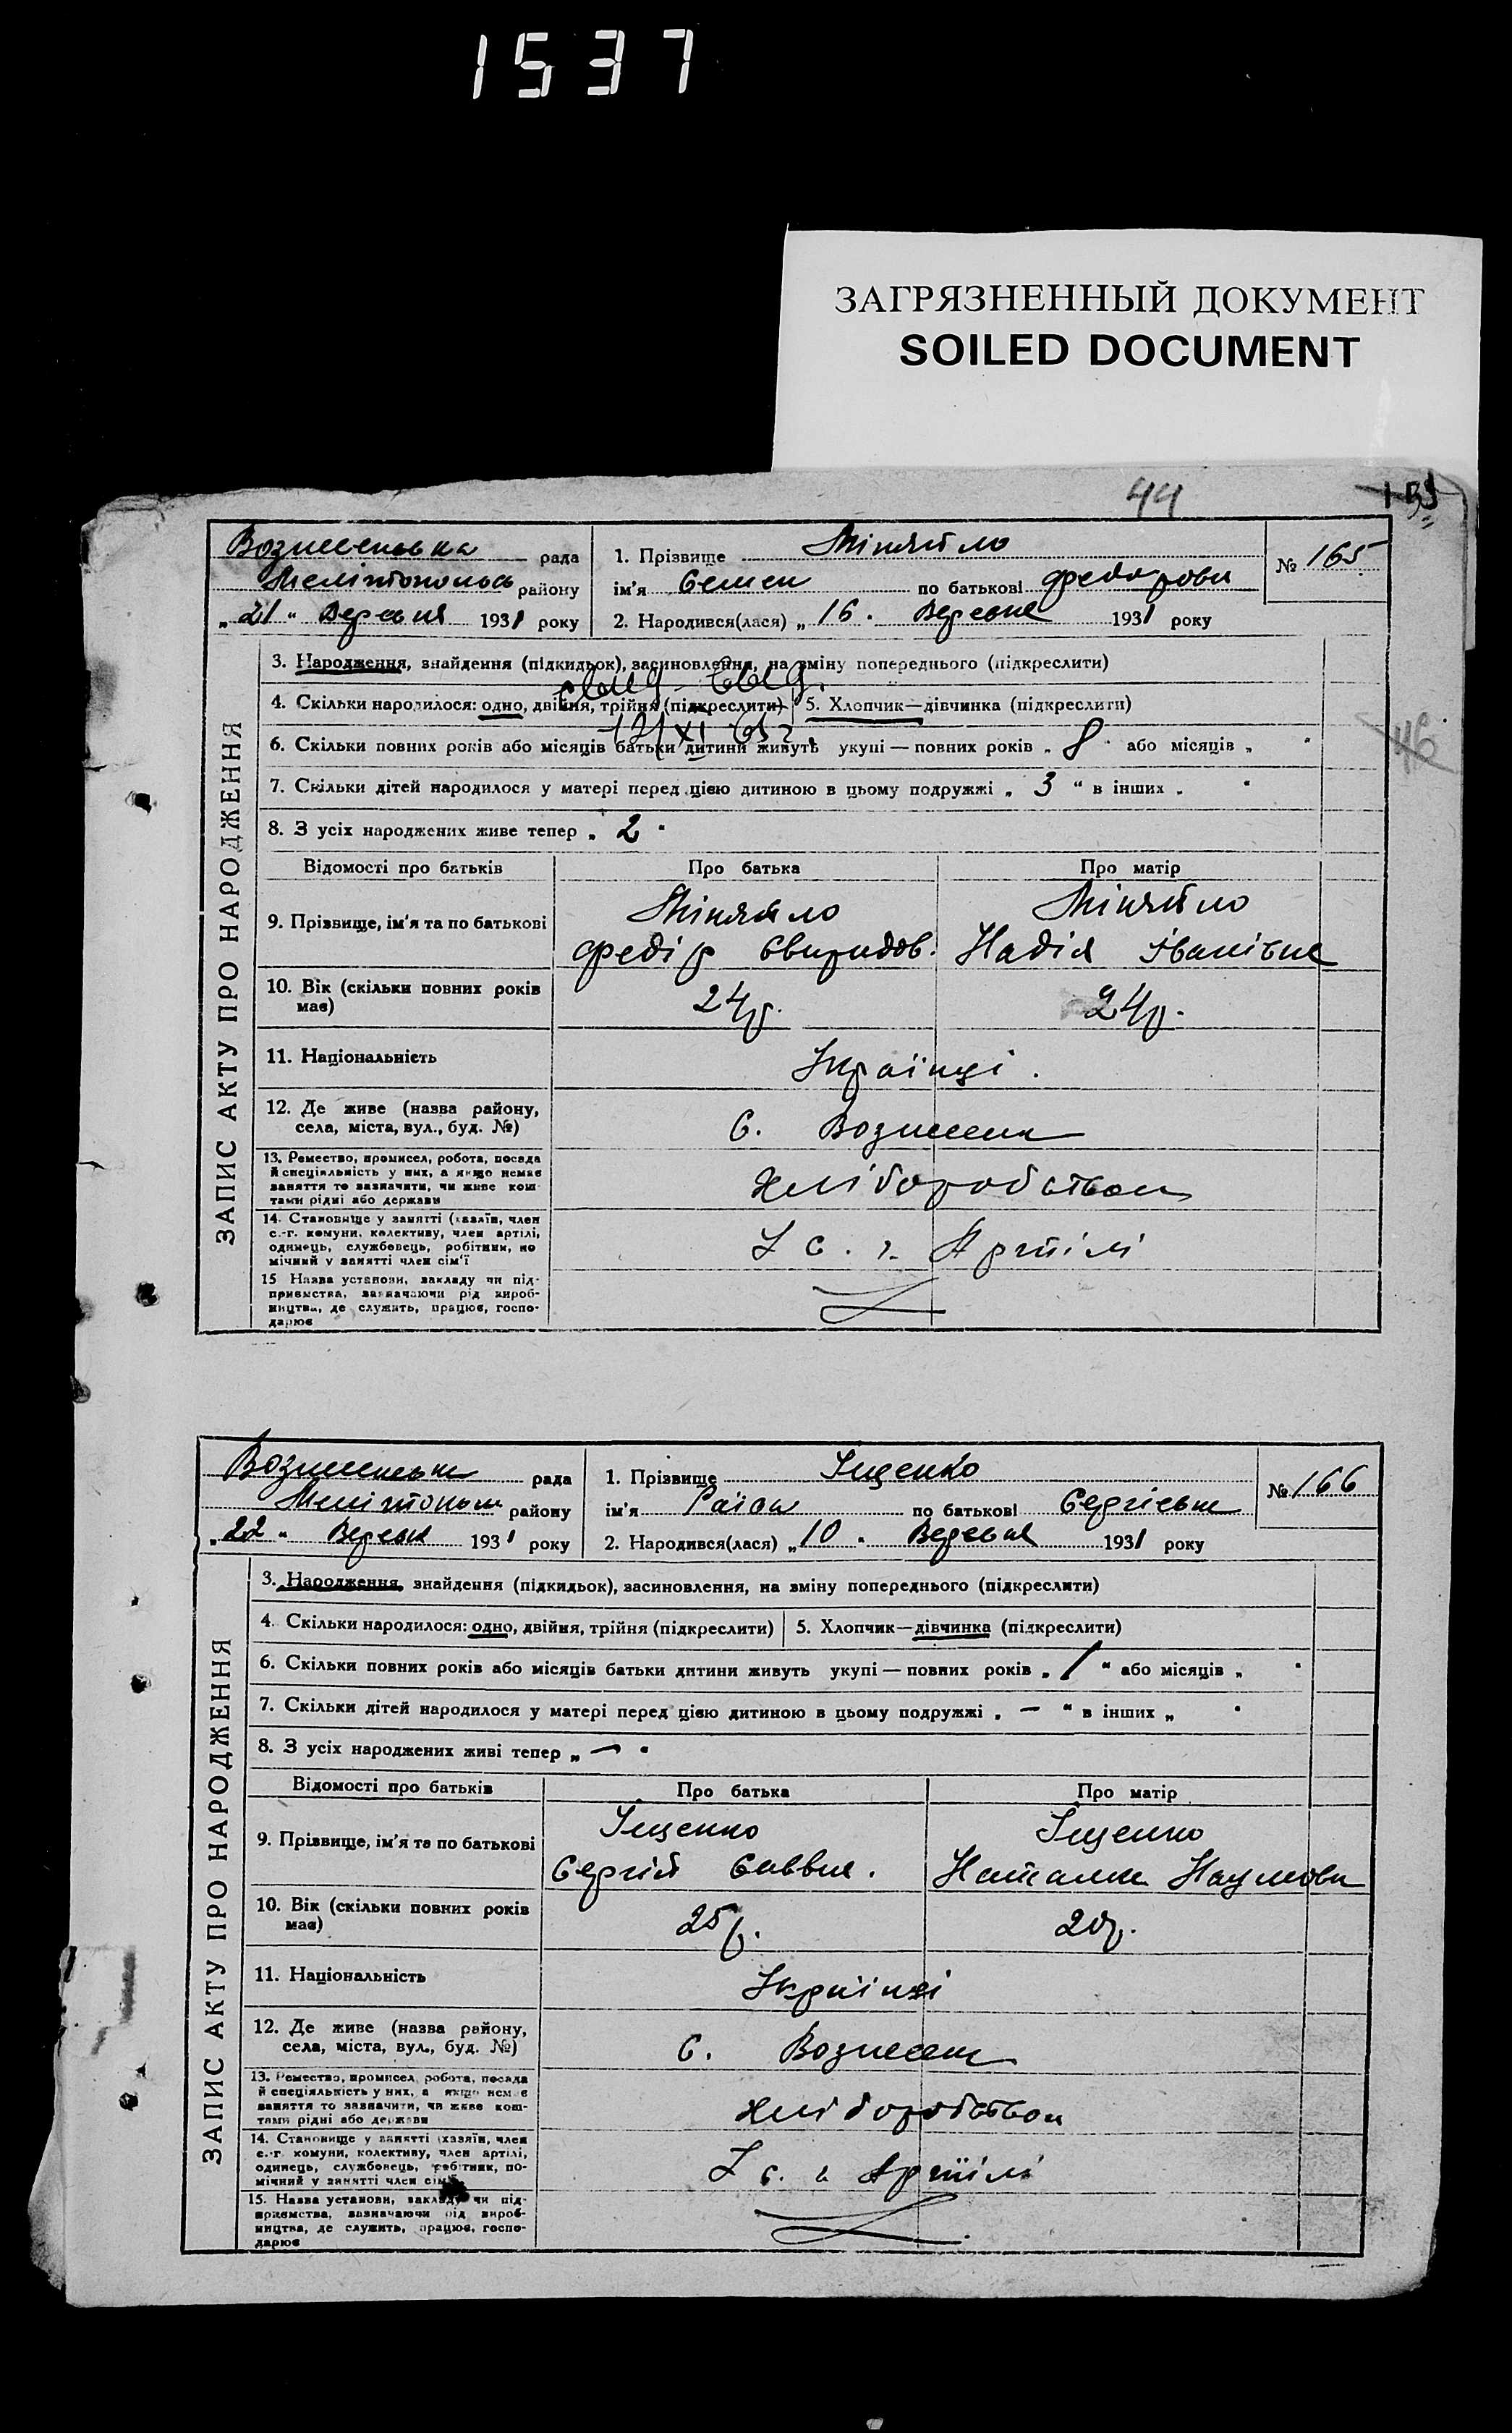 1537
ЗАГРЯЗНЕННЫЙ ДОКУМЕНТ
SOILED DOCUMENT
44
Вознесенська рада
Мелітопольс району
„ 21 " Вересня 1931 року
1. Прізвище Міняйло
ім'я Семен по батькові Федорови
2. Народився(лася) „ 16 " Вересня 1931 року
№ 165
ЗАПИС АКТУ ПРО НАРОДЖЕННЯ
3. Народження, знайдення (підкидьок), засиновлення, на зміну попереднього (підкреслити)
4. Скільки народилося: одно, двійня, трійня (підкреслити) 5. Хлопчик—дівчинка (підкреслити)
6. Скільки повних років або місяців батьки дитини живуть укупі — повних років „ 8 " або місяців „ "
7. Скільки дітей народилося у матері перед цією дитиною в цьому подружжі „ 3 " в інших „ "
8. З усіх народжених живе тепер „ 2 "
46
Відомості про батьків Про батька Про матір
9. Прізвище, ім'я та по батькові
Міняйло Міняйло
Федір Свиридов. Надія Іванівна
10. Вік (скільки повних років має)
24р. 24р.
11. Національність Українці.
12. Де живе (назва району,
села, міста, вул., буд. №) С. Вознесен
13. Ремество, промисел, робота, посада
й спеціяльність у них, а якщо немає
заняття то зазначити, чи живе кош-
тами рідні або держави
хліборобством
14. Становище у занятті (хазяїн, член
с.-г. комуни, колективу, член артілі,
одинець, службовець, робітник, по
мічний у занятті член сім'ї
с. г. Артілі
15 Назва установи, закладу чи під-
приємства, зазначаючи рід вироб-
ництва, де служить, працює, госпо-
дарює
Вознесенськ рада
Мелітопол району
„ 22 " Вересн 1931 року
1. Прізвище Іщенко
ім'я Раїса по батькові Сергієвна
2. Народився(лася) „ 10 " Вересня 1931 року
№ 166
ЗАПИС АКТУ ПРО НАРОДЖЕННЯ
3. Народження, знайдення (підкидьок), засиновлення, на зміну попереднього (підкреслити)
4. Скільки народилося: одно, двійня, трійня (підкреслити) 5. Хлопчик—дівчинка (підкреслити)
6. Скільки повних років або місяців батьки дитини живуть укупі — повних років „ 1 " або місяців „ "
7. Скільки дітей народилося у матері перед цією дитиною в цьому подружжі „ — " в інших „ "
8. З усіх народжених живі тепер „ — "
Відомості про батьків Про батька Про матір
9. Прізвище, ім'я та по батькові
Іщенко Іщенко
Сергій Саввич. Наталка Наумовн
10. Вік (скільки повних років
має)
25р. 20р.
11. Національність Українці
12. Де живе (назва району,
села, міста, вул., буд. №) С. Вознесен
13. Ремество, промисел, робота, посада
й спеціяльність у них, а якщо немає
заняття то зазначити, чи живе кош-
тами рідні або держави
хліборобством
14. Становище у занятті (хазяїн, член
с.-г. комуни, колективу, член артілі,
одинець, службовець, робітник, по-
мічний у занятті член сім'ї
с. г. Артілі
15. Назва установи, закладу чи під-
приємства, зазначаючи рід вироб-
ництва, де служить, працює, госпо-
дарює